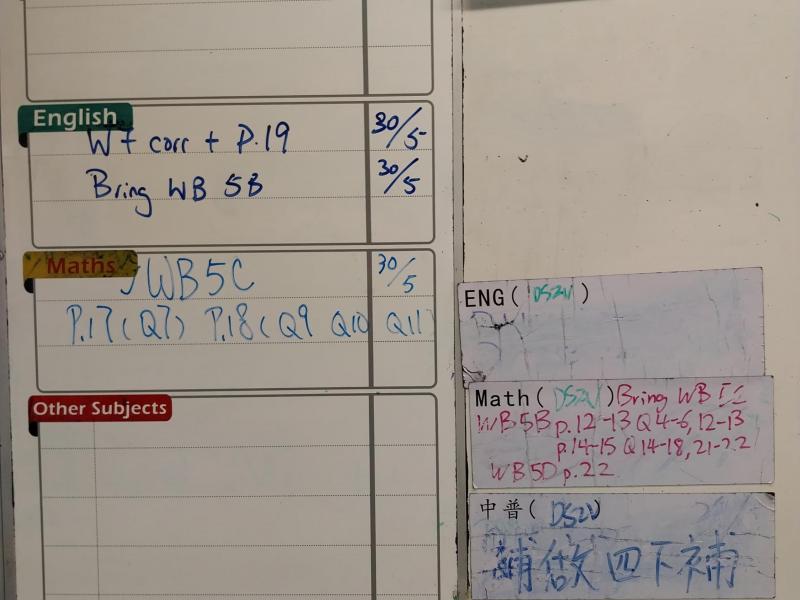 English
Wf corr + P.19 30/5
Bring WB 5B 30/5
Maths
WB5C 30/5
P.17(Q7) P.18(Q9 Q10 Q11)
Other Subjects
ENG(DS2V)
Math(DS2V)Bring WB
WB5B p.12-13 Q4-6,12-13
p.14-15 Q14-18,21-22
WB5D p.22
中普(DS2V)
補做四下補